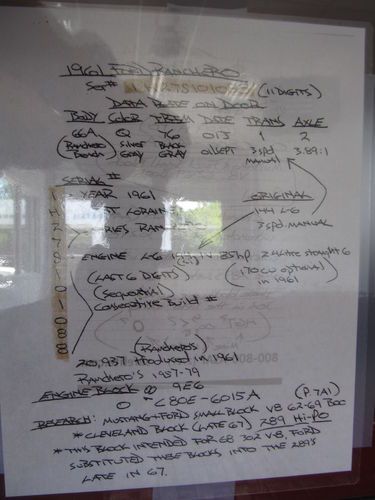 1961 FORD RANCHERO
SER# (11 DIGITS)
DATA PLATE ON DOOR
BODY COLOR TRIM DATE TRANS AXLE
66A Q 76 01J 1 2
(RANCHERO BENCH) SILVER GRAY BLACK GRAY 01 SEPT 3 SPD MANUAL 3.89:1
SERIAL # ORIGINAL
1 YEAR 1961 144 L-6
H LORAIN 3 SPD MANUAL
2 SERIES RANCHERO
7
S ENGINE L-6 144 85hp 2.4 Litre straight 6
1 (LAST 6 DIGITS) (170 CU OPTIONAL
0 (SEQUENTIAL) in 1961)
1 CONSECUTIVE BUILD #
0
8
8
(RANCHERO'S)
20,937 Produced in 1961
RANCHERO'S 1957-79
ENGINE BLOCK 9E6
C80E-6015A (P.7A1)
RESEARCH: MUSTANG + FORD SMALL BLOCK V8 62-69 BOOK
* CLEVELAND BLOCK (LATE 67) 289 HI-PO
* THIS BLOCK INTENDED FOR 68 302 V-8, FORD
SUBSTITUTED THESE BLOCKS INTO THE 289'S
LATE IN 67.